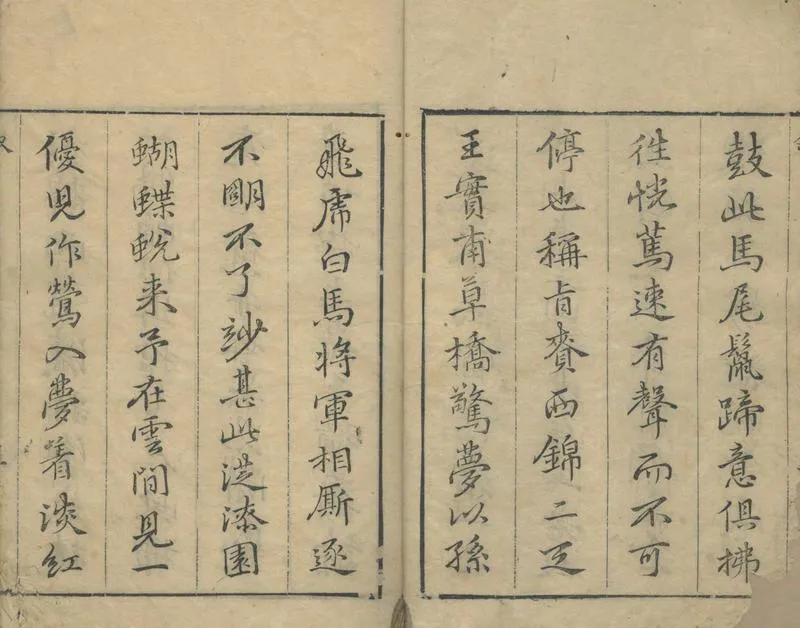 鼓此馬尾鬣蹄意俱拂
徃恍篤速有聲而不可
停也稱旨賚西錦二疋
王實甫草橋驚夢以孫
飛虎白馬將軍相厮逐
不朙不了玅甚此從漆園
蝴蝶蛻来予在雲間見一
優児作鶯入夢着淡紅